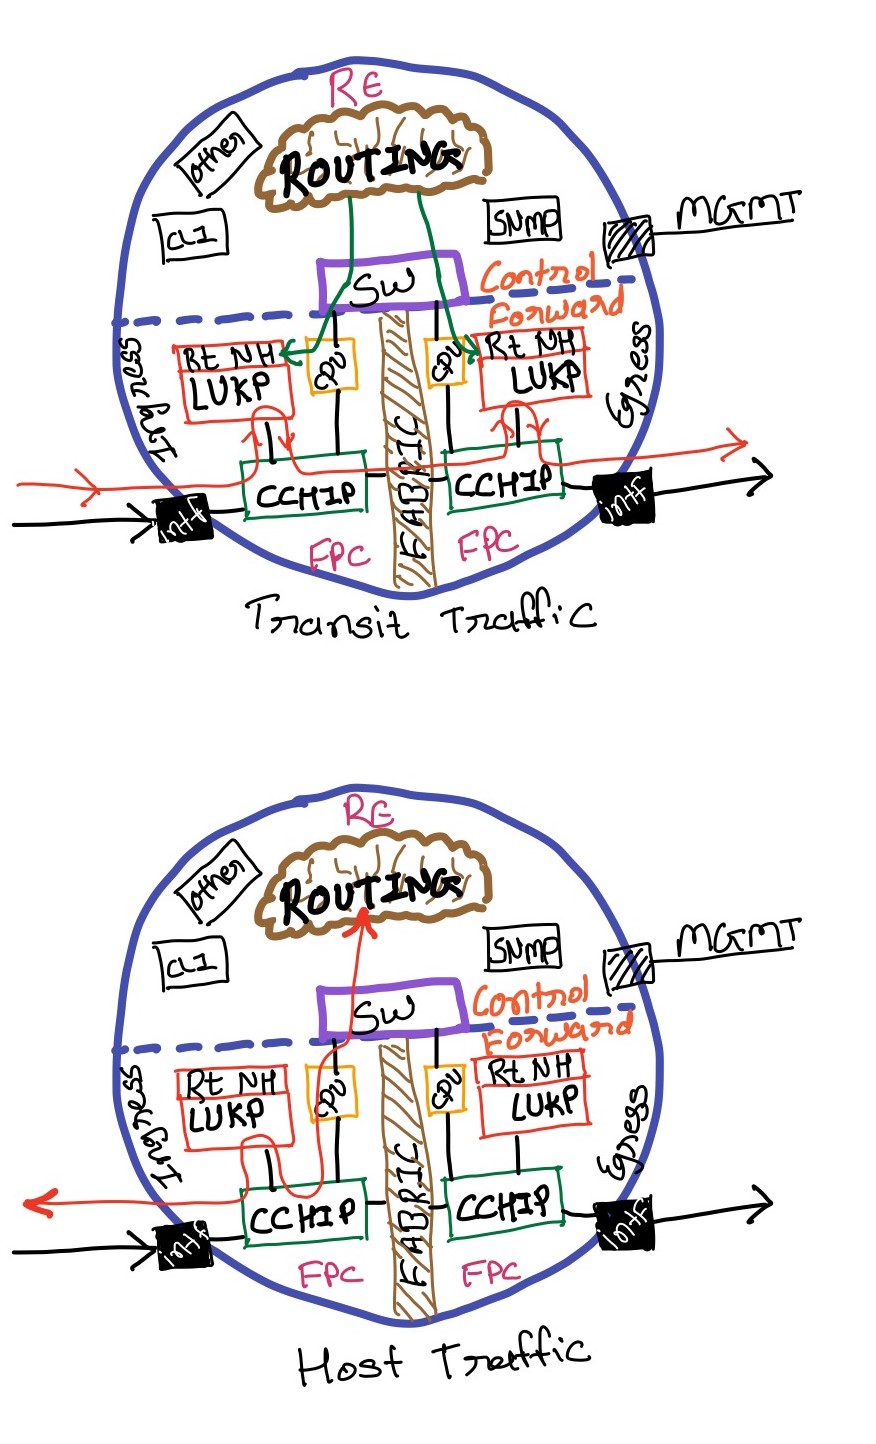 RE
other
ROUTING
CLI
SNMP
MGMT
SW
Control
Forward
Ingress
Rt NH
LUKP
CPU
FABRIC
CPU
Rt NH
LUKP
Egress
CCHIP
CCHIP
intf
intf
FPC
FPC
Transit Traffic
RE
other
ROUTING
CLI
SNMP
MGMT
SW
Control
Forward
Ingress
Rt NH
LUKP
CPU
FABRIC
CPU
Rt NH
LUKP
Egress
CCHIP
CCHIP
intf
intf
FPC
FPC
Host Traffic